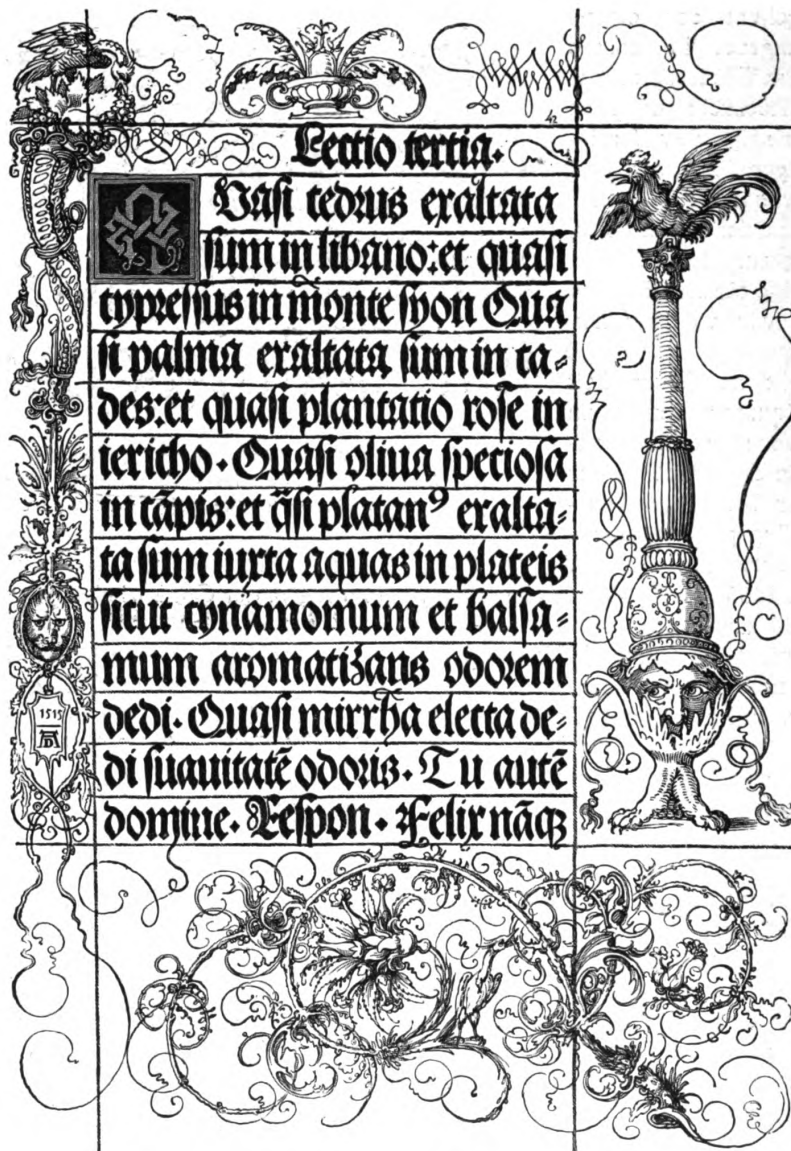 42
Lectio tertia.
QVasi cedrus exaltata
sum in libano: et quasi
cypressus in mōnte syon Qua
si palma exaltata sum in ca-
des: et quasi plantatio rose in
iericho. Quasi oliua speciosa
in cāpis: et q̄si platanꝰ exalta-
ta sum iuxta aquas in plateis
sicut cynamomum et balsa-
mum aromatizans odorem
dedi. Quasi mirrha electa de-
di suauitatē odoris. Tu autē
domine. Respon. Felix nāqꝫ
1515
AD